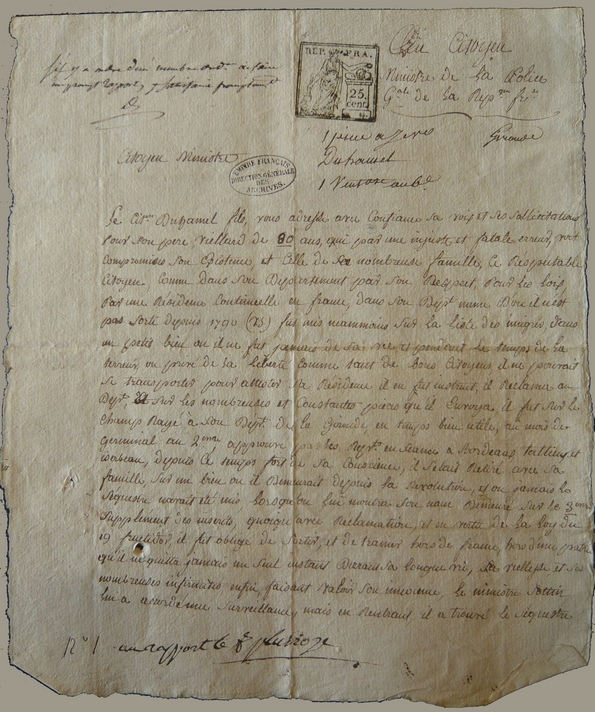 Au Citoyen
Ministre de la Police
G^ale de la Rep^que fr^se
REP. FRA.
25
cent.
Gironde
Duhamel
Citoyen Ministre
EMPIRE FRANÇAIS
DIRECTION GÉNÉRALE
DES
ARCHIVES.
Le Cit^en Duhamel fils, vous adresse avec Confiance sa voix et ses sollicitations
Pour son pere, viellard de 80 ans, qui par une injuste et fatale erreur, voit
Compromises son Existence et Celle de sa nombreuse famille, Ce Respectable
Citoyen Connu dans son Departement par son Respect Pour les lois,
Par une Residence Continuelle en france, dans son Dept meme Dou il n'est
pas Sorti depuis 1790 fut mis neanmoins sur la Liste des emigrés dans
un petit bien ou il ne fut jamais de sa vie, et pendant le temps de la
terreur ou privé de la liberté comme tant de bons Citoyens il ne pouvait
se transporter pour attester sa Residence il en fut instruit, il Reclama au
Dept, et sur les nombreuses et Constantes pieces qu'il Envoya, il fut sur le
Champ Rayé a son Dept de la Gironde, en temps bien utile, au mois de
germinal an 2eme approuvé par les Rept en seance a Bordeaux tallien et
isabeau, depuis Ce temps fort de sa Conscience, il s'etait Retiré avec sa
famille, sur un bien ou il Demeurait depuis la Revolution, et ou jamais le
Sequestre n'avait été mis lorsqu'on lui montra son nom sur le 3eme
Supplement des inscrits, quoique avec Reclamation, et en vertu de la loi du
19 fructidor, il fut obligé de Sortir, et de trainer hors de france, hors d'une patrie
qu'il ne quitta jamais un seul instant Durant sa longue vie, sa viellesse et ses
nombreuses infirmités enfin faisant valoir son innocence, le ministre Sottin
lui a accordé une Surveillance, mais en Rentrant il a trouvé le Sequestre
N° 1 au rapport le